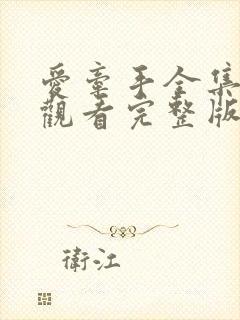 愛牽手全集
觀看完整版
衛江